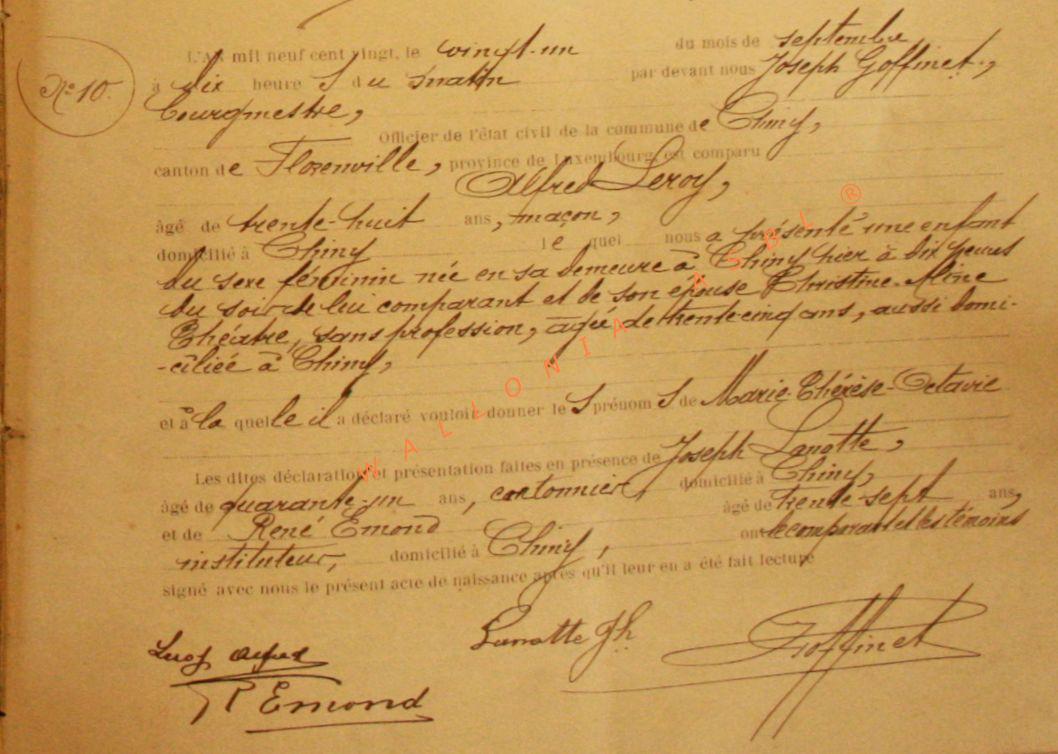 N° 10.
L'AN mil neuf cent vingt, le vingt-un du mois de septembre
à dix heure s du matin par devant nous Joseph Goffinet,
bourgmestre,
Officier de l'état civil de la commune de Chiny,
canton de Florenville, province de Luxembourg, est comparu
Alfred Leroy,
âgé de trente-huit ans, maçon,
domicilié à Chiny le quel nous a présenté une enfant
du sexe féminin née en sa demeure à Chiny hier à dix heures
du soir de lui comparant et de son épouse Christine Aline
Théâtre, sans profession, âgée de trente-cinq ans, aussi domi-
-ciliée à Chiny,
et à la quelle il a déclaré vouloir donner les prénoms de Marie-Thérèse-Octavie
Les dites déclaration et présentation faites en présence de Joseph Lanotte,
âgé de quarante-un ans, cantonnier, domicilié à Chiny,
et de René Emond âgé de trente-sept ans,
instituteur, domicilié à Chiny, ont le comparant et les témoins
signé avec nous le présent acte de naissance après qu'il leur en a été fait lecture
Leroy Alfred Lanotte Jh Goffinet
R Emond
WALLONIA ASBL ®